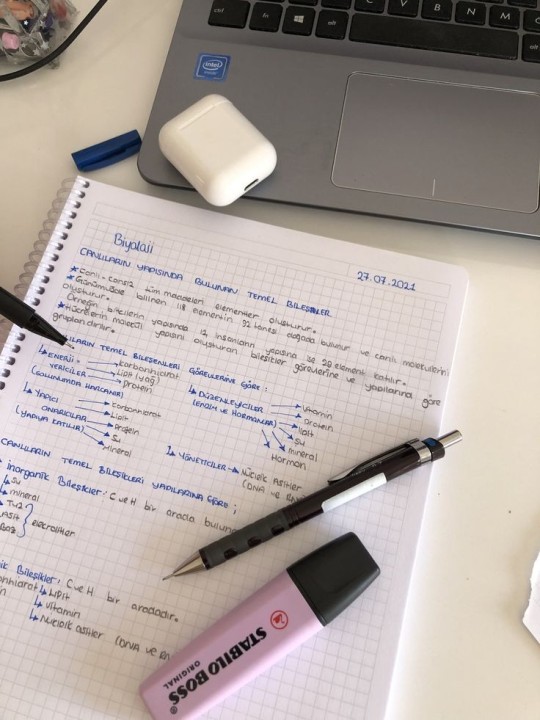 ctrl
fn
alt
V
B
N
M
alt
intel
Biyoloji
27.07.2021
CANLILARIN YAPISINDA BULUNAN TEMEL BİLEŞENLER
* Canlı-cansız tüm maddeleri elementler oluşturur.
* Günümüzde bilinen 118 elementin 92 tanesi doğada bulunur ve canlı moleküllerini
oluşturur.
Örneğin bitkilerin yapısında 12 insanların yapısına ise 29 element katılır.
* Hücrelerin molekül yapısını oluşturan bileşikler görevlerine ve yapılarına göre
gruplandırılır.
TEMEL BİLEŞENLERİ GÖREVLERİNE GÖRE:
↳ ENERJİ → karbonhidrat
VERİCİLER → Lipit (yağ)
(SOLUNUMDA HARCANIR) → protein
↳ DÜZENLEYİCİLER → vitamin
(ENZİM VE HORMONLAR) → protein
→ lipit
→ su
→ mineral
→ Hormon
↳ YAPICI → karbonhidrat
ONARICILAR → Lipit
(YAPIYA KATILIR) → protein
→ Su
→ Mineral
↳ YÖNETİCİLER → Nükleik Asitler
(DNA ve
CANLILARIN TEMEL BİLEŞİKLERİ YAPILARINA GÖRE;
İnorganik Bileşikler: C ve H bir arada
↳ Su
↳ mineral
↳ Tuz
ASİT
BAZ
} elektrolitler
Bileşikler: C ve H bir aradadır.
↳ Lipit
↳ vitamin
↳ Nükleik asitler (DNA ve
STABILO BOSS
ORIGINAL